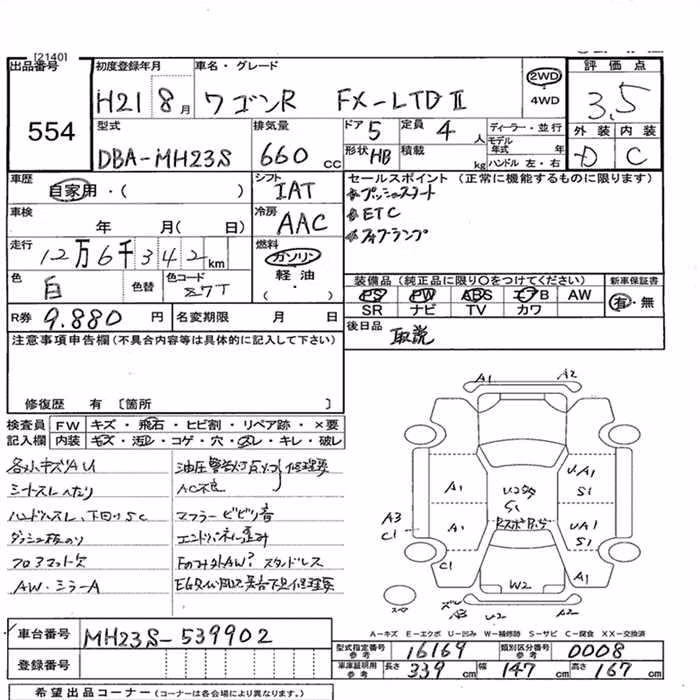 [2140]
出品番号 554
初度登録年月 H21 8月
車名・グレード ワゴンR FX-LTD II
2WD・4WD
評価点 3.5
外装 D 内装 C
型式 DBA-MH23S
排気量 660 cc
ドア 5
定員 4人
形状 HB
積載 kg
ディーラー・並行
モデル年式 年
ハンドル 左・右
車歴 自家用・( )
シフト IAT
車検 年 月( 日)
冷房 AAC
走行 12万6千342km
燃料 ガソリン・軽油・( )
色 白
色替
色コード Z7T
R券 9.880円
名変期限 月 日
セールスポイント (正常に機能するものに限ります)
プッシュスタート
ETC
フォグランプ
装備品 (純正品に限り〇をつけてください)
PS PW ABS エアB AW
SR ナビ TV カワ
新車保証書 有・無
後日品 取説
注意事項申告欄(不具合内容等は具体的に記入して下さい)
修復歴 有〔箇所 〕
検査員記入欄
FW キズ・飛石・ヒビ割・リペア跡・×要
内装 キズ・汚レ・コゲ・穴・スレ・キレ・破レ
各小キズAU
シートスレ
ハンドルスレ、下回りSC
フロアマット欠
AW・ミラーA
油圧警告灯点灯 修理要
AC不良
マフラービビリ音
スタンドレス
A1 A2
A1
U A1 S1
A1
UA1 S1
A3 C1
C1
A1
S1
W2
スペア
A3 U2 A2
A-キズ E-エクボ U-凹み W-補修跡 S-サビ C-腐食 XX-交換済
車台番号 MH23S-539902
登録番号
型式指定番号 参考 16169
類別区分番号 参考 0008
車庫証明用 参考 長さ 339 cm 幅 147 cm 高さ 167 cm
希望出品コーナー (コーナーは各会場により異なります。)